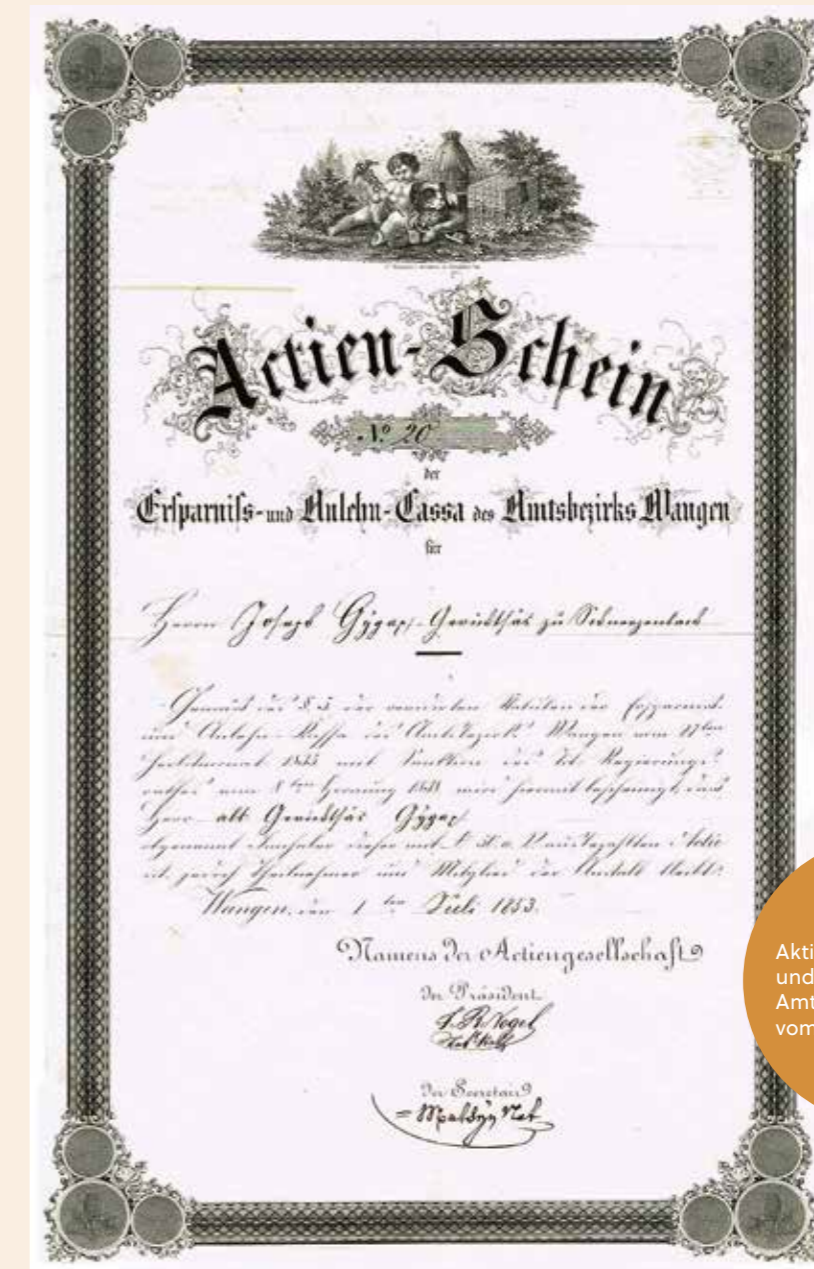 Actien-Schein
№ 20
der
Ersparniss- und Anlehn-Cassa des Amtsbezirks Wangen
für
Herrn Joseph Gygax, Gerichtsäs zu
Gemäss des § 5 der revidirten Statuten der Ersparniss-
und Anlehn-Kassa des Amtsbezirks Wangen vom 27ten
mit Sanktion des Tit. Regierungs-
rathes vom 8ten Hornung wird hiermit bescheinigt, dass
Herr alt Gerichtsäs Gygax
Inhaber dieser mit
Theilnehmer und Mitglied der Anstalt bleibt.
Wangen, den 1ten Juli 1853.
Namens der Actiengesellschaft
Der Präsident
J. R. Vogel
Der Secretair
Not.
Akti
und
Amt
vom